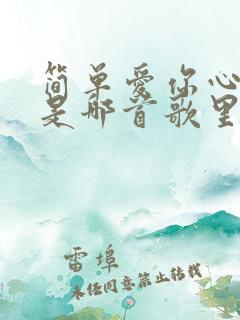 简单爱你心
是那首歌里
雷埠
未经同意禁止转载